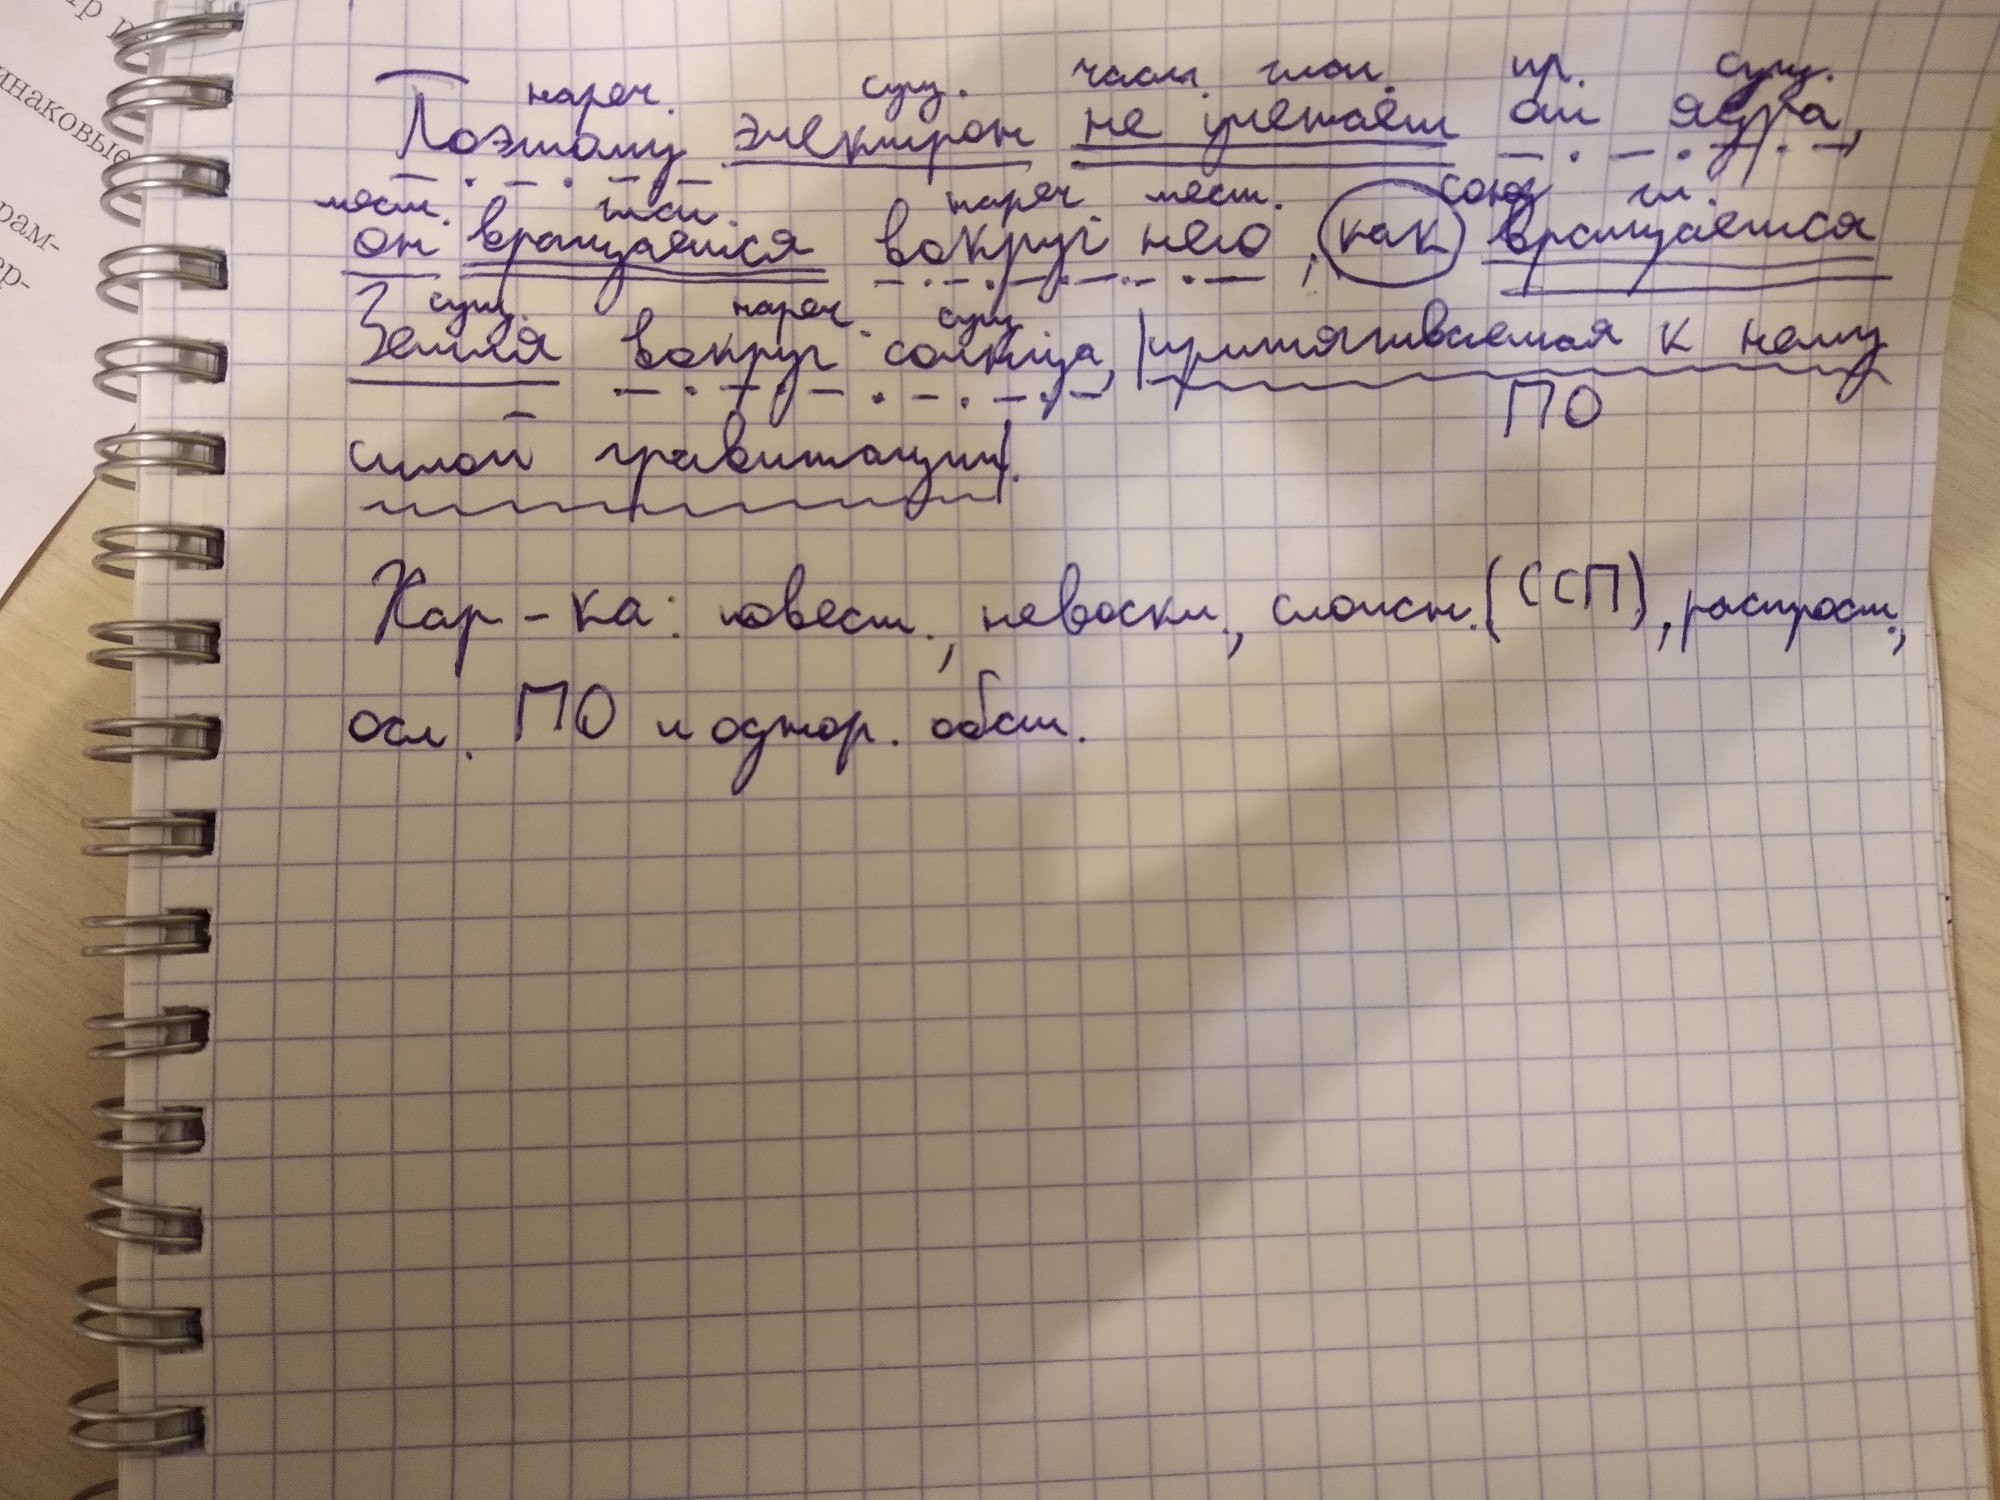 тр
инаковые
рам-
ер-
нареч. сущ. част. глаг. пр. сущ.
Поэтому электрон не улетает от ядра,
мест. глаг. нареч мест. союз гл.
он вращается вокруг него, как вращается
сущ. нареч. сущ.
Земля вокруг солнца, |притягиваемая к нему
ПО
силой гравитации|.
Хар-ка: повест., невоскл., сложн. (ССП), распрост.,
осл. ПО и однор. обст.